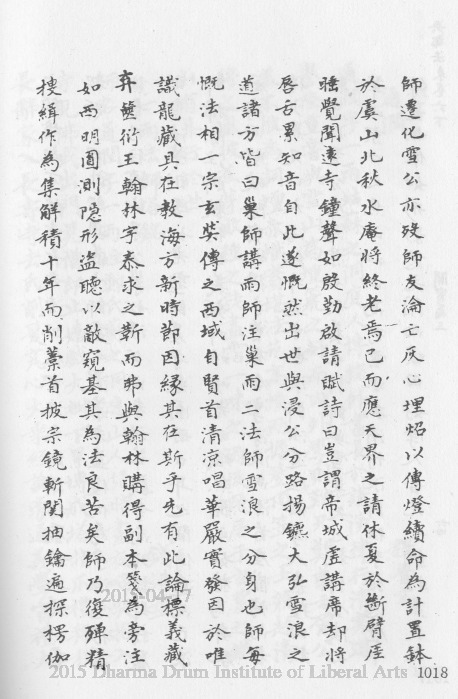 師遷化雪公亦歿師友淪亡灰心埋炤以傳燈續命為計置鉢
於虞山北秋水庵將終老焉已而應天界之請休夏於斷臂崖
睡覺聞遠寺鐘聲如殷勤啟請賦詩曰豈謂帝城虛講席却將
唇舌累知音自此遂慨然出世與浸公分路揚鑣大弘雪浪之
道諸方皆曰巢師講雨師注巢雨二法師雪浪之分身也師每
慨法相一宗玄奘傳之西域自賢首清涼唱華嚴實發因於唯
識龍藏具在教海方新時節因緣其在斯乎先有此論標義藏
弆王翰林宇泰求之靳而弗與翰林購得副本為旁注
如西明圓測隱形盜聽以敵窺基其為法良苦矣師乃復殫精
搜緝作為集解積十年而削藁首披宗鏡斬関抽鑰遍探楞伽
2015 Dharma Drum Institute of Liberal Arts 1018